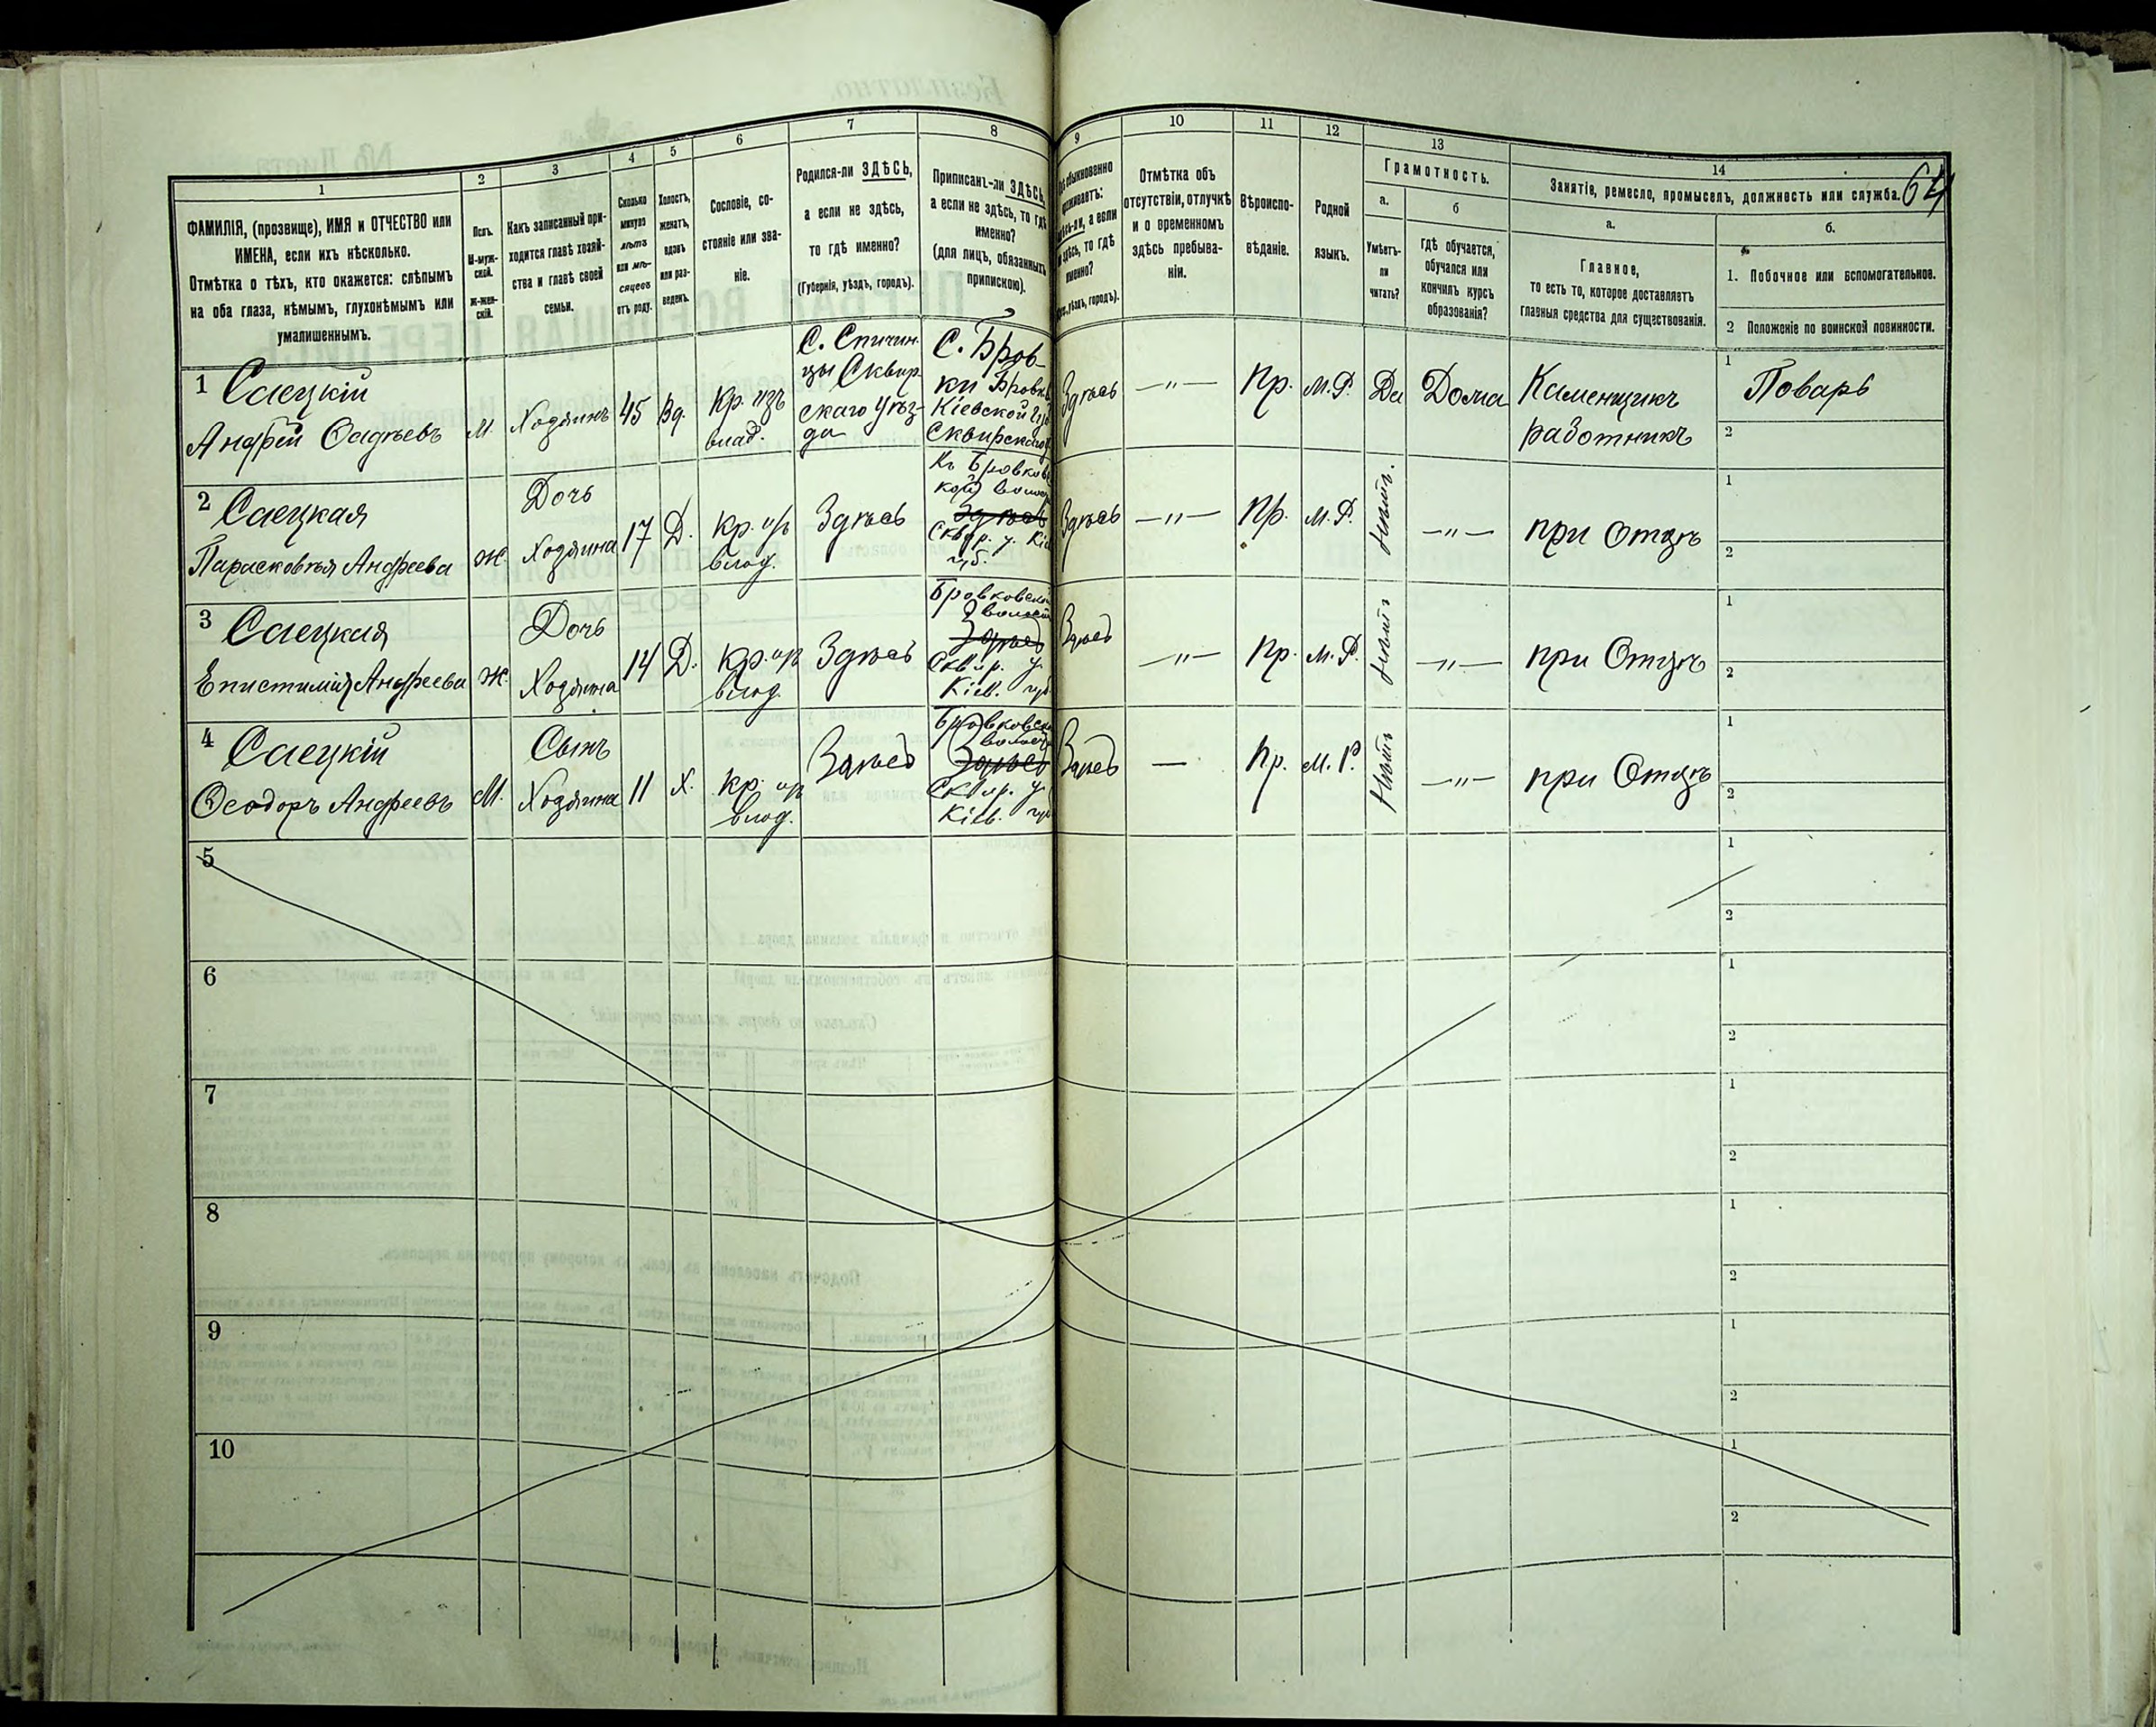 64
1 2 3 4 5 6 7 8 9 10 11 12 13 14
ФАМИЛІЯ, (прозвище), ИМЯ и ОТЧЕСТВО или
ИМЕНА, если ихъ нѣсколько.
Отмѣтка о тѣхъ, кто окажется: слѣпымъ
на оба глаза, нѣмымъ, глухонѣмымъ или
умалишеннымъ.
Полъ.
М-муж-
ской.
Ж-жен-
скій.
Какъ записанный при-
ходится главѣ хозяй-
ства и главѣ своей
семьи.
Сколько
минуло
лѣтъ
или мѣ-
сяцевъ
отъ роду.
Холостъ,
женатъ,
вдовъ
или раз-
веденъ.
Сословіе, со-
стояніе или зва-
ніе.
Родился-ли ЗДѢСЬ,
а если не здѣсь,
то гдѣ именно?
(Губернія, уѣздъ, городъ).
Приписанъ-ли ЗДѢСЬ,
а если не здѣсь, то гдѣ
именно?
(для лицъ, обязанныхъ
припискою).
обыкновенно
проживаетъ:
здѣсь-ли, а если
не здѣсь, то гдѣ
именно?
уѣздъ, городъ).
Отмѣтка объ
отсутствіи, отлучкѣ
и о временномъ
здѣсь пребыва-
ніи.
Вѣроиспо-
вѣданіе.
Родной
языкъ.
Грамотность.
а.
Умѣетъ-
ли
читать?
б
гдѣ обучается,
обучался или
кончилъ курсъ
образованія?
Занятіе, ремесло, промыселъ, должность или служба.
а.
Главное,
то есть то, которое доставляетъ
главныя средства для существованія.
б.
1. Побочное или вспомогательное.
2 Положеніе по воинской повинности.
1 Саецкій
Андрей Фадѣевъ
М.
Хозяинъ
45
Вд.
Кр. изъ
влад.
С. Спичин-
цы Сквир-
скаго уѣз-
да
С. Бров-
ки Бровк
Кіевской губ
Сквирскаго
Здѣсь
—"—
Пр.
М.Р.
Да
Дома
Каменщикъ
работникъ
1 Поваръ
2
2 Саецкая
Парасковѣя Андреева
Ж.
Дочь
Хозяина
17
Д.
Кр. изъ
влад.
Здѣсь
Къ Бровковс
кой волос
Здѣсь
Сквир. у. Кіе
губ.
Здѣсь
—"—
Пр.
М.Р.
—"—
при Отцѣ
1
2
3 Саецкая
Епистимія Андреева
Ж.
Дочь
Хозяина
14
Д.
Кр. изъ
влад.
Здѣсь
Бровковской
волости
Здѣсь
Сквир. у.
Кіев. губ
Здѣсь
—"—
Пр.
М.Р.
—"—
при Отцѣ
1
2
4 Саецкій
Ѳеодоръ Андреевъ
М.
Сынъ
Хозяина
11
Х.
Кр. изъ
влад.
Здѣсь
Бровковско
волости
Здѣсь
Сквир. у
Кіев. губ
Здѣсь
—
Пр.
М.Р.
—"—
при Отцѣ
1
2
5
1
2
6
1
2
7
1
2
8
1
2
9
1
2
10
1
2